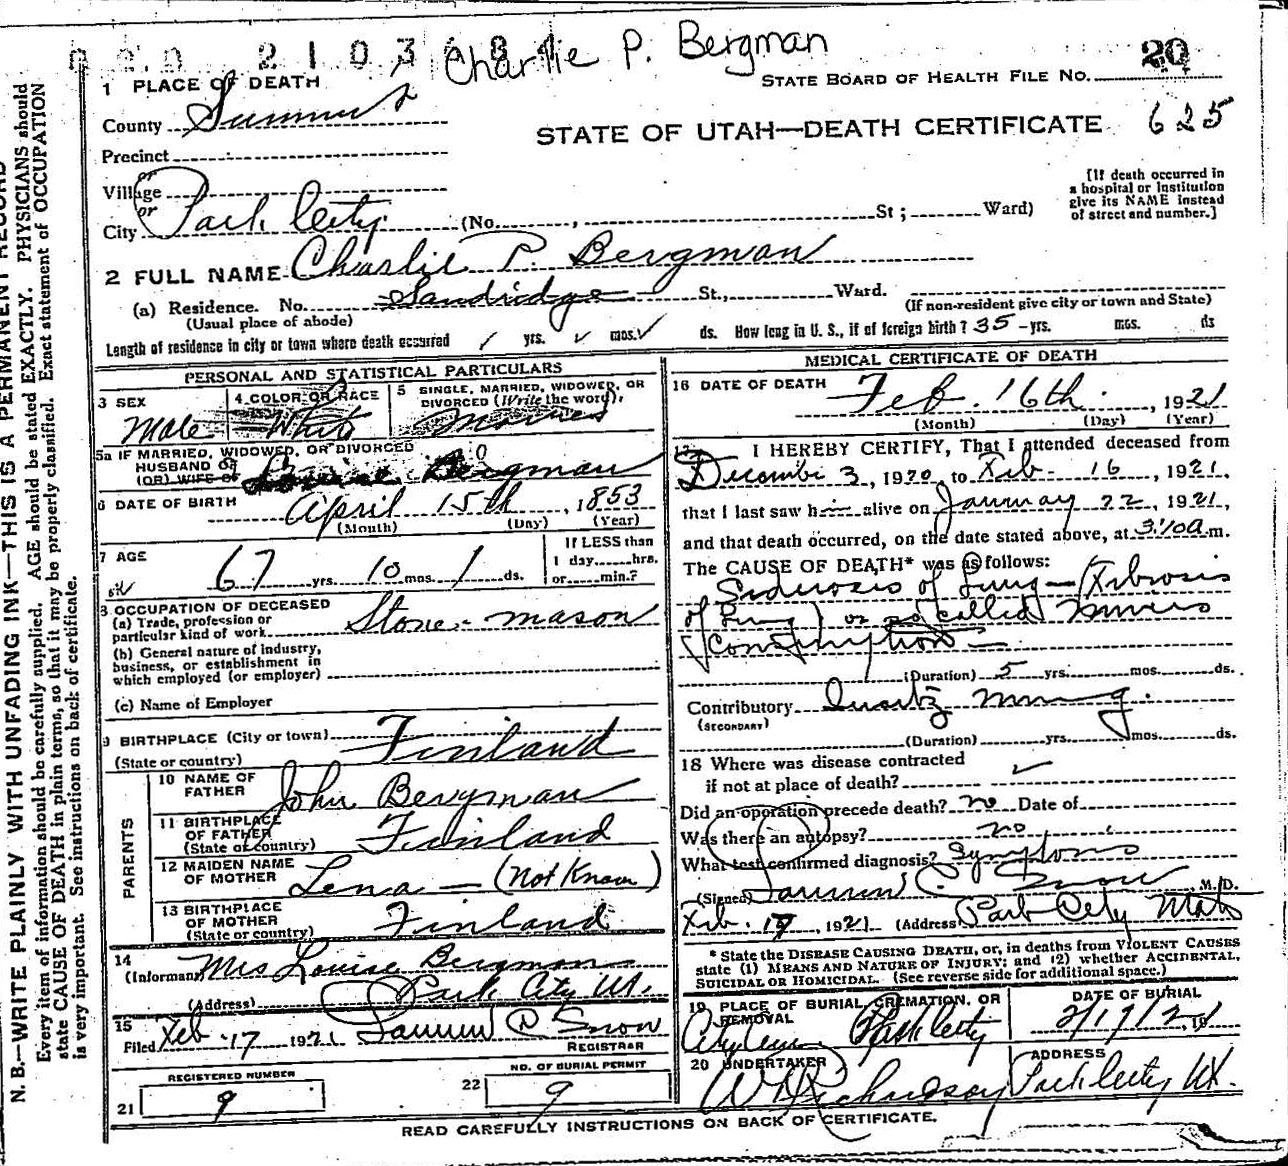 Charlie P. Bergman
20
STATE BOARD OF HEALTH FILE No.
1 PLACE OF DEATH
County Summit
STATE OF UTAH—DEATH CERTIFICATE 625
Precinct
or
Village
or
City Park City (No. , St; Ward)
[If death occurred in
a hospital or institution
give its NAME instead
of street and number.]
2 FULL NAME Charlie P. Bergman
(a) Residence. No. Sandridge St., Ward.
(Usual place of abode)
(If non-resident give city or town and State)
Length of residence in city or town where death occurred 1 yrs. mos. ds. How long in U. S., if of foreign birth? 35 yrs. mos. ds
PERSONAL AND STATISTICAL PARTICULARS
3 SEX
Male
4 COLOR OR RACE
White
5 SINGLE, MARRIED, WIDOWED, OR
DIVORCED (Write the word)
Married
5a IF MARRIED, WIDOWED, OR DIVORCED
HUSBAND OF
(OR) WIFE OF Louise Bergman
6 DATE OF BIRTH April 15th, 1853
(Month) (Day) (Year)
7 AGE
67 yrs. 10 mos. 1 ds.
If LESS than
1 day hrs.
or min.?
8 OCCUPATION OF DECEASED
(a) Trade, profession or
particular kind of work Stone-mason
(b) General nature of industry,
business, or establishment in
which employed (or employer)
(c) Name of Employer
9 BIRTHPLACE (City or town)
(State or country) Finland
PARENTS
10 NAME OF
FATHER John Bergman
11 BIRTHPLACE
OF FATHER
(State or country) Finland
12 MAIDEN NAME
OF MOTHER Lena — (Not Known)
13 BIRTHPLACE
OF MOTHER
(State or country) Finland
14
(Informant Mrs Louise Bergman
(Address) Park City Ut.
15
Filed Feb 17 1921
REGISTRAR
REGISTERED NUMBER
21 9
NO. OF BURIAL PERMIT
22 9
MEDICAL CERTIFICATE OF DEATH
16 DATE OF DEATH Feb. 16th, 1921
(Month) (Day) (Year)
17 I HEREBY CERTIFY, That I attended deceased from
December 3, 1920, to Feb - 16, 1921,
that I last saw him alive on January 22, 1921,
and that death occurred, on the date stated above, at 3:10 a m.
The CAUSE OF DEATH* was as follows:
Siderosis of Lung — (Fibrosis
of Lung) or so called Miners
Consumption —
(Duration) 5 yrs. mos. ds.
Contributory Quartz mining.
(SECONDARY)
(Duration) yrs. mos. ds.
18 Where was disease contracted
if not at place of death?
Did an operation precede death? no Date of
Was there an autopsy? no
What test confirmed diagnosis? Symptoms
(Signed) Snow, M. D.
Feb. 17, 1921 (Address Park City Utah
* State the DISEASE CAUSING DEATH, or, in deaths from VIOLENT CAUSES
state (1) MEANS AND NATURE OF INJURY; and (2) whether ACCIDENTAL,
SUICIDAL OR HOMICIDAL. (See reverse side for additional space.)
19 PLACE OF BURIAL, CREMATION, OR
REMOVAL
Park City
DATE OF BURIAL
2/19/21
20 UNDERTAKER
Richardson
ADDRESS
Park City Ut.
READ CAREFULLY INSTRUCTIONS ON BACK OF CERTIFICATE.
N. B.—WRITE PLAINLY WITH UNFADING INK—THIS IS A PERMANENT RECORD
Every item of information should be carefully supplied. AGE should be stated EXACTLY. PHYSICIANS should
state CAUSE OF DEATH in plain terms, so that it may be properly classified. Exact statement of OCCUPATION
is very important. See instructions on back of certificate.